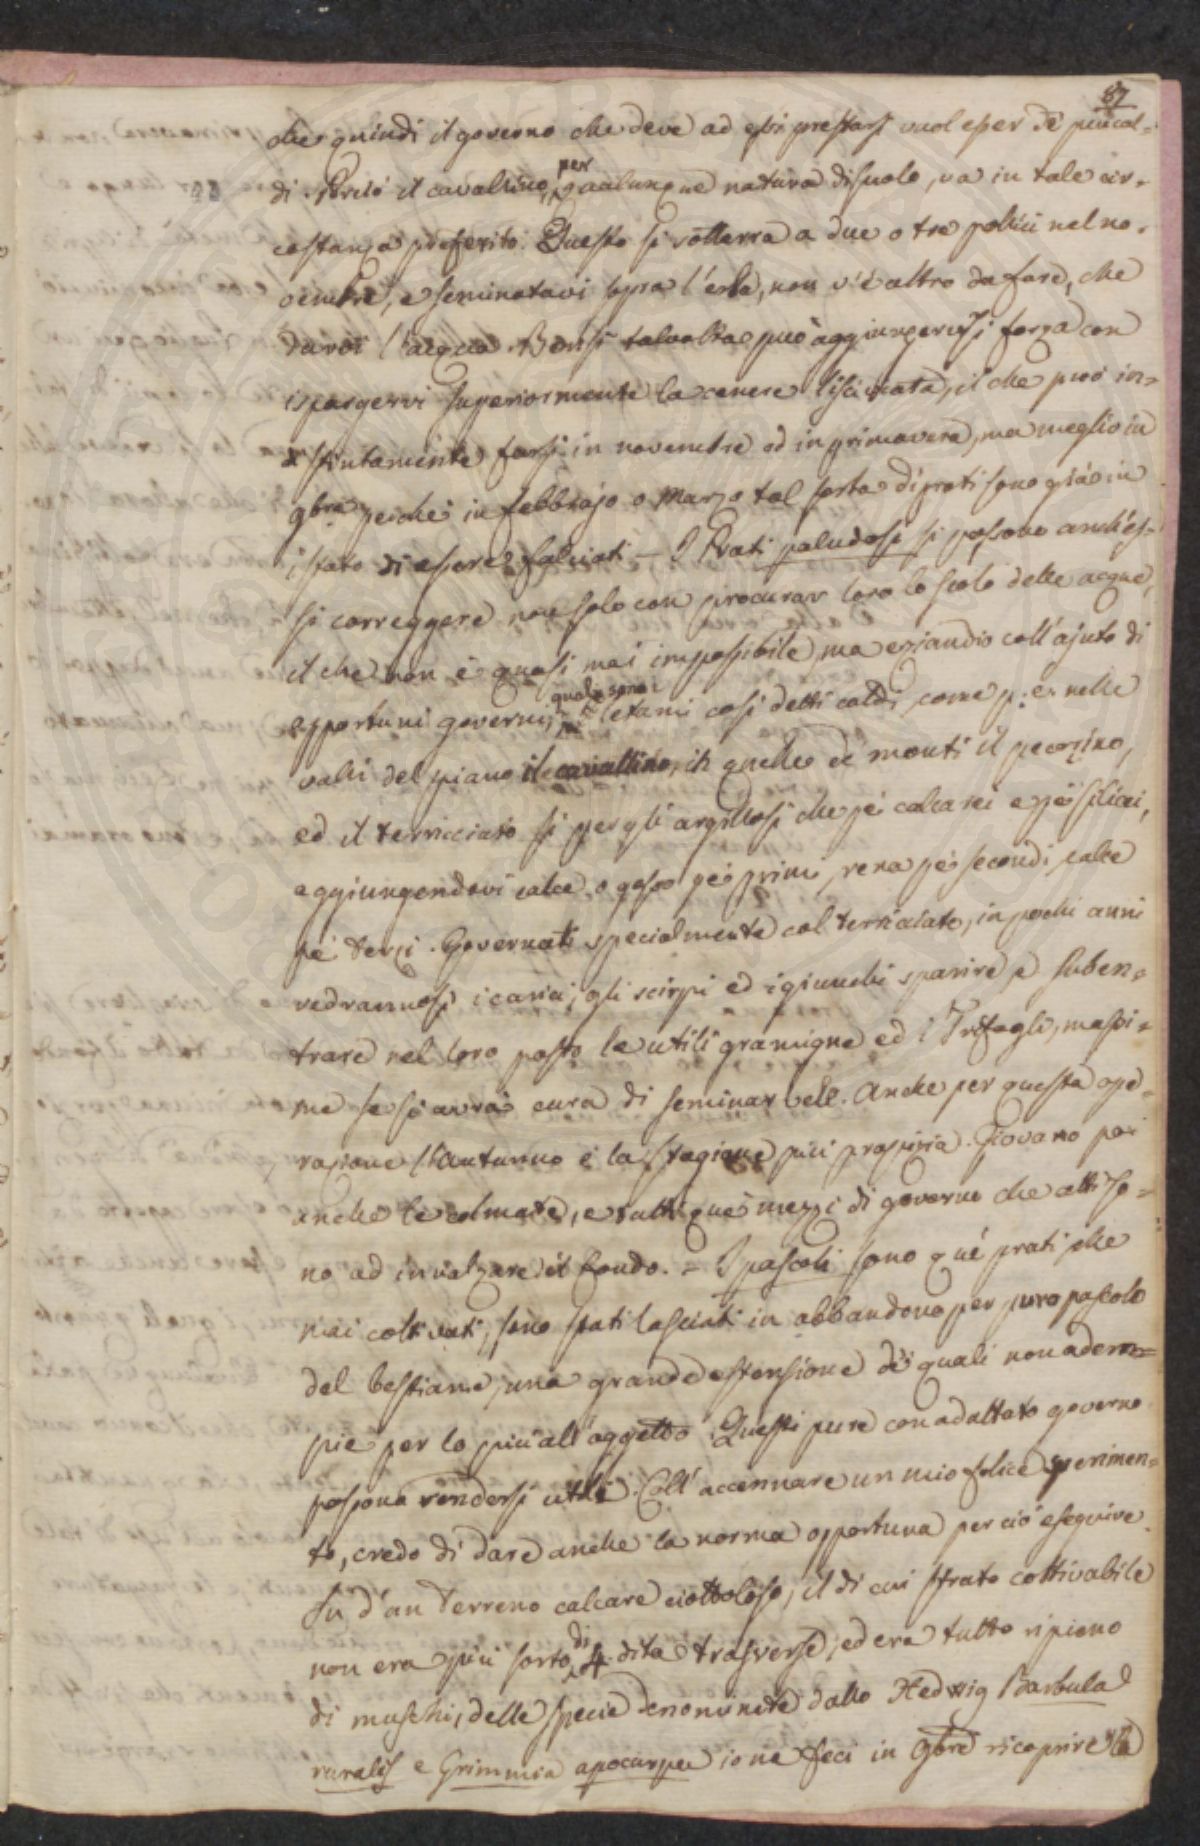 87
che quindi il governo che deve ad essi prestarsi vuol esser de' più cal=
di. Perciò il cavallino, per qualunque natura di suolo, va in tale cir=
costanza preferito. Questo si sotterra a due o tre pollici nel no=
vembre, e seminatavi sopra l'erba, non v'è altro da fare, che
darvi l'acqua. Bensì talvolta può aggiungervisi forza con
ispargervi superiormente la cenere lisciviata, il che può in=
distintamente farsi in novembre od in primavera, ma meglio in
9bre perchè in febbrajo o Marzo tal sorta di prati sono già in
istato di essere falciati — I Prati paludosi si possono anch'es=
si correggere non solo con procurar loro lo scolo delle acque,
il che non è quasi mai impossibile, ma eziandio coll'ajuto di
opportuni governi, quali sono i letami così detti caldi, come p: es: nelle
valli del piano il cavallino, in quelle de' monti il pecorino,
ed il terricciato sì per gli argillosi che pe' calcarei e pe' silicei,
aggiungendovi calce o gesso pe' primi, rena pe' secondi, calce
pe' terzi. Governati specialmente col terricciato, in pochi anni
vedrannosi i carici, gli scirpi ed i giunchi sparire e suben=
trare nel loro posto le utili gramigne ed i Trifogli, massi=
me se si avrà cura di seminarvele. Anche per questa ope=
razione l'Autunno è la stagione più propizia. Giovano poi
anche le colmate, e tutti que' mezzi di governo che atti so=
no ad innalzare il fondo. = I pascoli sono que' prati che
mai coltivati, sono stati lasciati in abbandono per puro pascolo
del bestiame, una grande estensione de' quali non adem=
pie per lo più all'oggetto. Questi pure con adattato governo
possono rendersi utili. Coll'accennare un mio felice sperimen=
to, credo di dare anche la norma opportuna per ciò eseguire.
Su d'un Terreno calcare ciottoloso, il di cui strato coltivabile
non era più sorto di 4 dita trasverse, ed era tutto ripieno
di muschi, delle specie denominate dallo Hedwig Barbula
ruralis e Grimmia apocarpa io ne feci in 9bre ricoprire la